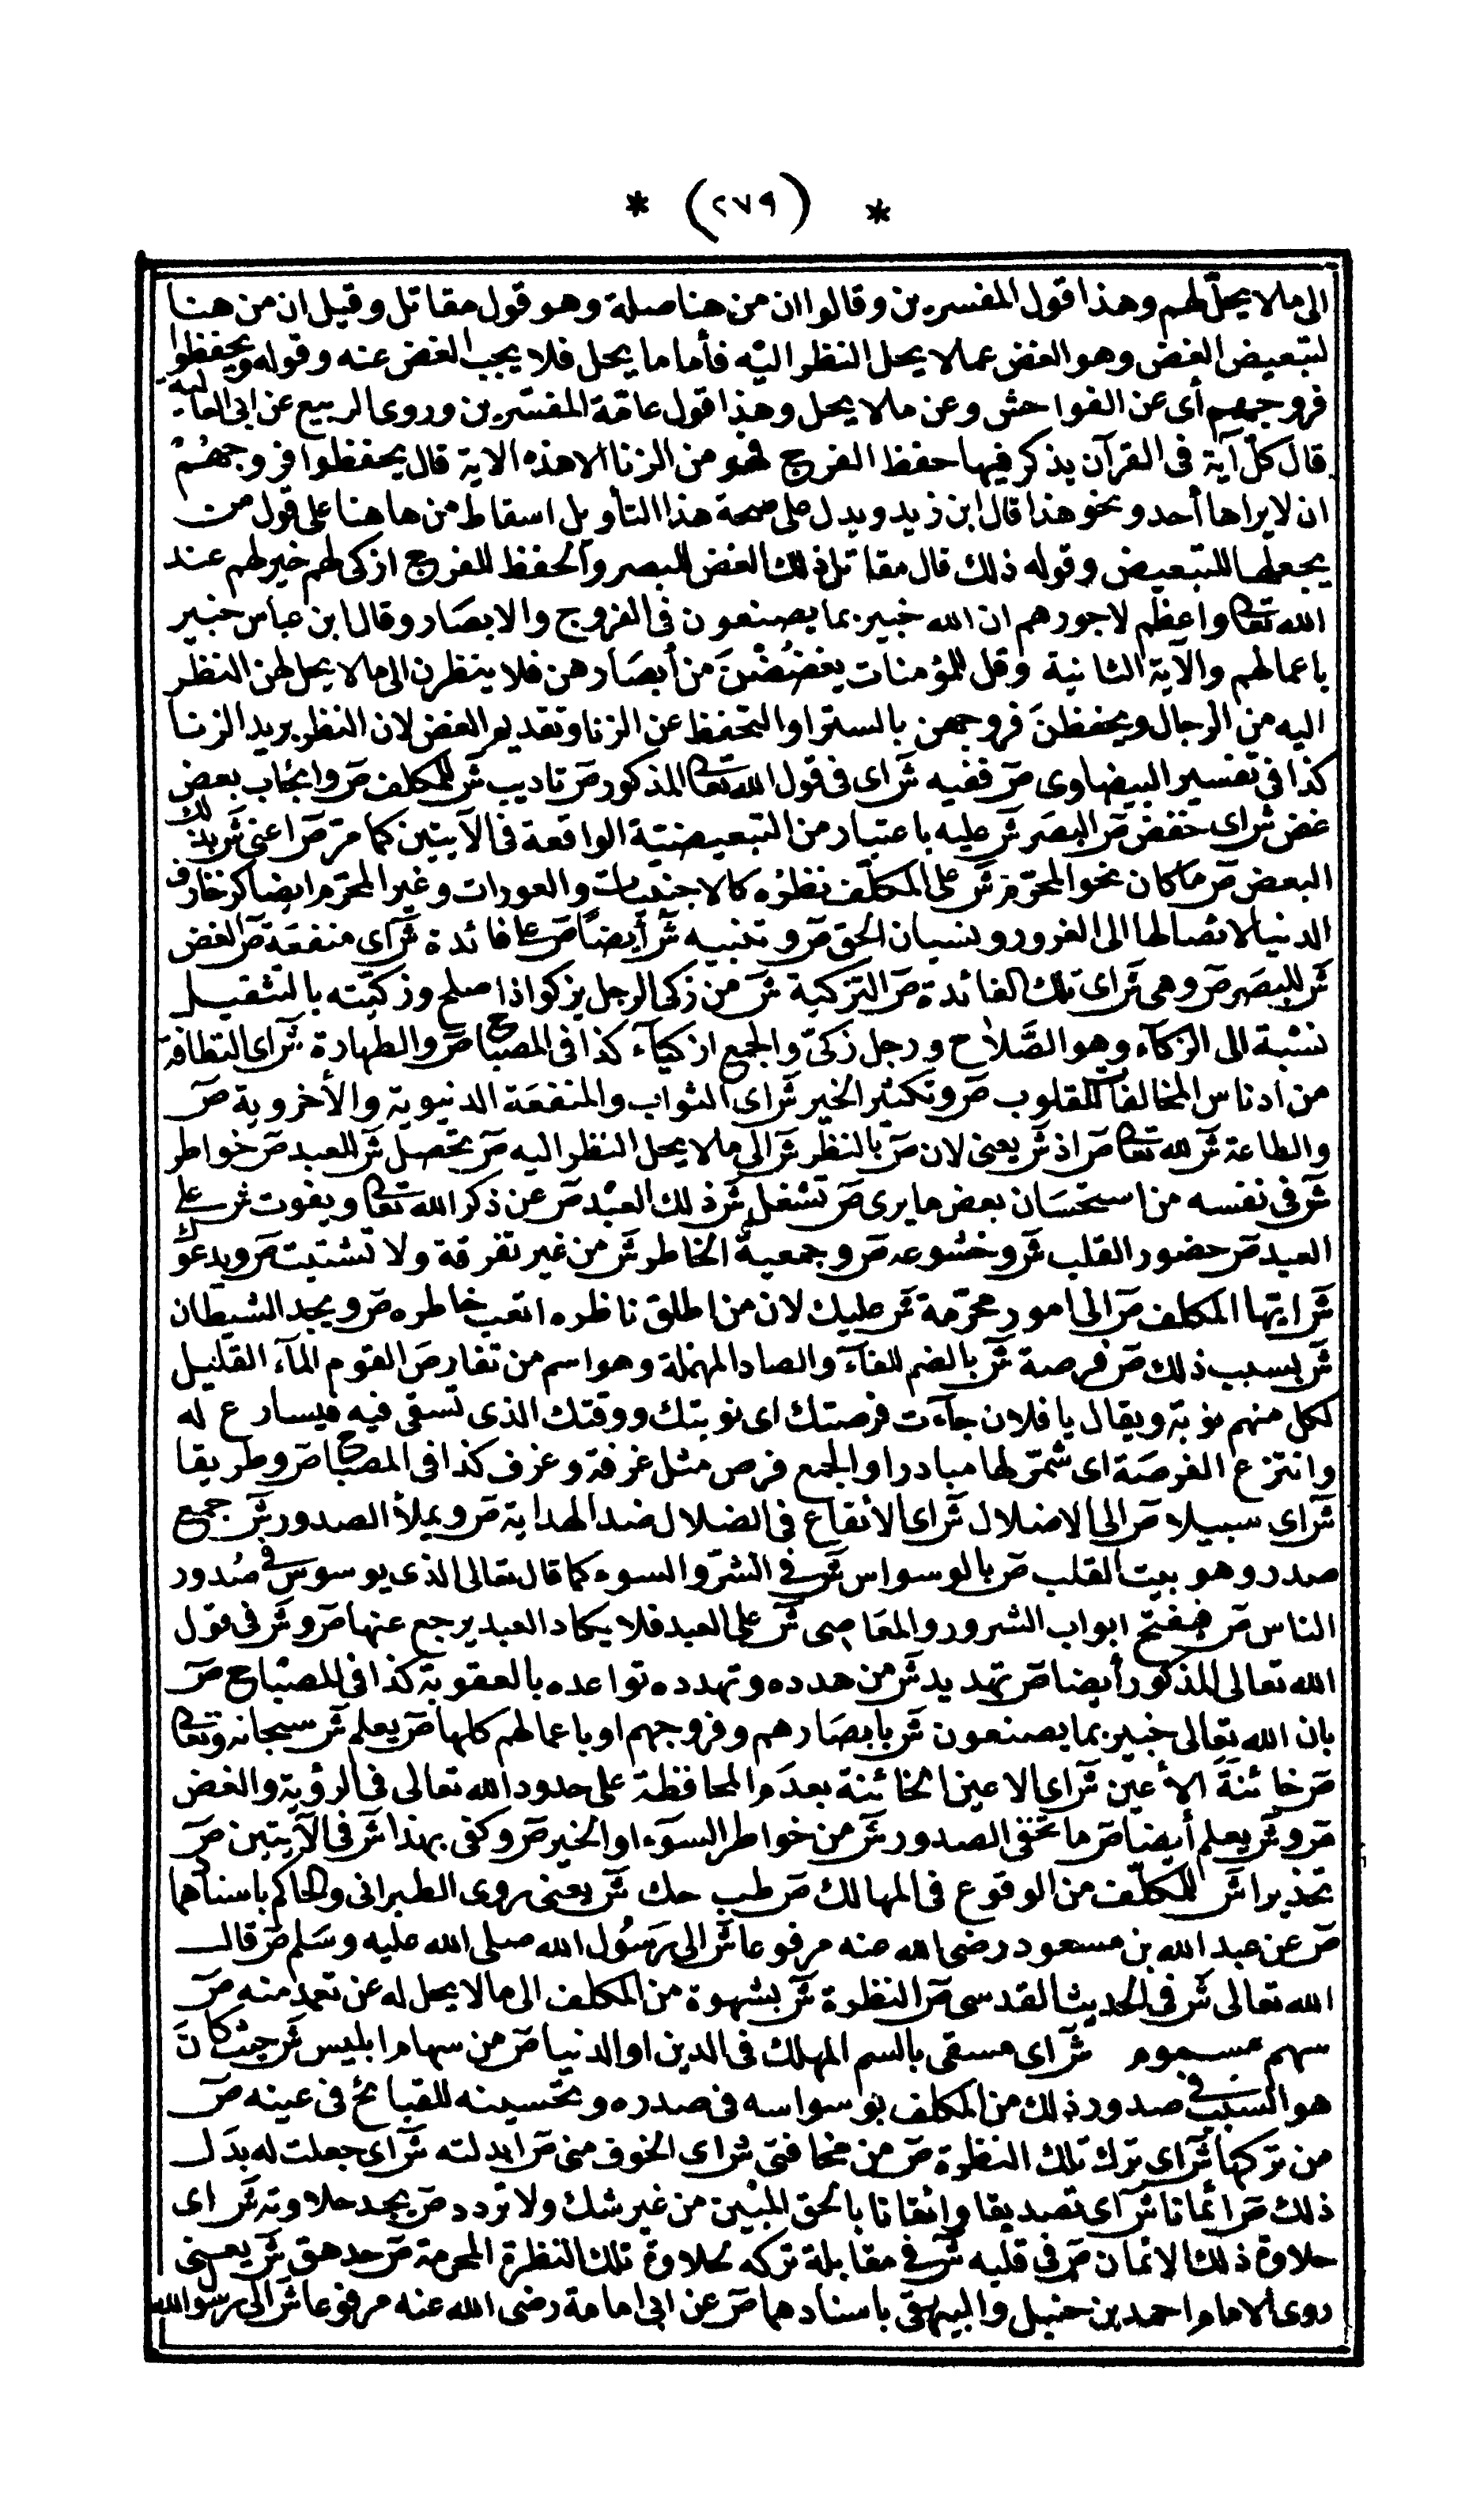 * (٢٧٩) *
الى ما لا يحل لهم وهذا قول المفسرين وقالوا ان من هنا صلة وهو قول مقاتل وقيل ان من هنا
لتبعيض الغض وهو الغض عما لا يحل النظر اليه فأما ما يحل فلا يجب الغض عنه وقوله ويحفظوا
فروجهم أى عن الفواحش وعن ما لا يحل وهذا قول عامة المفسّرين وروى الربيع عن ابى العالية
قال كلّ آية فى القرآن يذكر فيها حفظ الفرج فهو من الزنا الا هذه الاية قال يحفظوا فروجهُمْ
ان لا يراها أحد ونحو هذا قال ابن زيد ويدل على صحة هذا التأويل اسقاط من هاهنا على قول من
يجعلها للتبعيض وقوله ذلك قال مقاتل ذلك الغض للبصر والحفظ للفرج ازكى لهم خير لهم عند
الله تعا واعظم لاجورهم ان الله خبير بما يصنعون فى الفروج والابصَار وقال ابن عباس خبير
باعمالهم والآية الثانية وقل للمؤمنات يغضُضْنَ من أبصَارهن فلا ينظرن الى ما لا يحل لهن النظر
اليه من الرجال ويحفظنَ فروجهن بالستر او التحفظ عن الزنا وتقديم الغض لان النظر بريد الزنا
كذا فى تفسير البيضاوى صۤ ففيه شۤ اى فى قول الله تعا المذكور صۤ تاديب شۤ للمكلف صۤ وايجاب بعض
غض شۤ اى خفض صۤ البصَر شۤ عليه باعتبار من التبعيضيّة الواقعة فى الآيتين كما مرّ صۤ اعنى شۤ بذلك
البعض صۤ ما كان نحو المحرّم شۤ على المكلّف نظرُه كالاجنبيات والعورات وغير المحرّم ايضا كزخارف
الدنيا لايصالها الى الغرور ونسيان الحق صۤ وتنبيه شۤ أيضًا صۤ على فائدة شۤ اى منفعَة صۤ الغض
شۤ للبصَر صۤ وهى شۤ اى تلك الفائدة صۤ التزكية شۤ من زكى الرجل يزكو اذا صلح وزكيّته بالتثقيل
نسْبة الى الزكآء وهو الصَّلاح ورجل زكىّ والجمع ازكيآء كذا فى المصباح صۤ والطهارة شۤ اى النظافة
من ادناس المخالفا للقلوب صۤ وتكثير الخير شۤ اى الثواب والمنفعَة الدنيوية والأخروية صۤ
والطاعة شۤ لله تعا صۤ اذ شۤ يعنى لان صۤ بالنظر شۤ الى ما لا يحل النظر اليه صۤ يحصل شۤ للعبد صۤ خواطر
شۤ فى نفسه من استحسَان بعض ما يرى صۤ تشغل شۤ ذلك العبْد صۤ عن ذكر الله تعا ويفوت شۤ على
العبد صۤ حضور القلب شۤ وخشوعه صۤ وجمعية الخاطر شۤ من غير تفرقة ولا تشتيت صۤ ويدعوك
شۤ ايّها المكلف صۤ الى امور محرّمة شۤ عليك لان من اطلق ناظره اتعب خاطره صۤ ويجد الشيطان
شۤ بسبب ذلك صۤ فرصة شۤ بالضم للفآء والصاد المهملة وهو اسم من تفارص القوم المآء القليل
لكل منهم نوبة ويقال يا فلان جآءت فرصتك اى نوبتك ووقتك الذى تسقى فيه فيسارع له
وانتزع الفرصَة اى شمّر لها مبادرا والجمع فرص مثل غرفة وغرف كذا فى المصباح صۤ وطريقا
شۤ اى سبيلا صۤ الى الاضلال شۤ اى الايقاع فى الضلال ضد الهداية صۤ ويملأ الصدور شۤ جميع
صدر وهو بيت القلب صۤ بالوسواس شۤ فى الشرّ والسوء كما قال تعالى الذى يوسوس فى صُدور
الناس صۤ فيفتح ابواب الشرور والمعَاصى شۤ على العبد فلا يكاد العبد يرجع عنها صۤ و شۤ فى قول
الله تعالى المذكور أيضا صۤ تهديد شۤ من هدده وتهدده تواعده بالعقوبة كذا فى المصْباح صۤ
بان الله تعالى خبير بما يصنعون شۤ بابصَارهم وفروجهم او باعمالهم كلها صۤ يعلم شۤ سبحانه وتعا
صۤ خائنةَ الأعين شۤ اى الاعين الخائنة بعدَم المحافظة على حدود الله تعالى فى الرؤية والغض
صۤ و شۤ يعلم أيضا صۤ ما تخفى الصدور شۤ من خواطر السوۤء او الخير صۤ وكفى بهذا شۤ فى الآيتين صۤ
تحذيرا شۤ للمكلّف من الوقوع فى المهالك صۤ طب حك شۤ يعنى روى الطبرانى والحاكم باسنادهما
صۤ عن عبد الله بن مسعود رضى الله عنه مرفوعا شۤ الى رسُول الله صلى الله عليه وسَلم صۤ قال
الله تعالى شۤ فى الحديث القدسى صۤ النظرة شۤ بشهوة من المكلف الى ما لا يحل له عن تعمد منه صۤ
سهم مسموم شۤ اى مسقى بالسم المهلك فى الدين او الدنيا صۤ من سهام ابليس شۤ حيث كانَ
هو السبب فى صدور ذلك من المكلف بوسواسه فى صدره وتحسينه للقبائح فى عينه صۤ
من تركها شۤ اى ترك تلك النظرة صۤ من مخافتى شۤ اى الخوف منى صۤ ابدلته شۤ اى جعلت له بدَل
ذلك صۤ ايمانا شۤ اى تصديقا وايقانا بالحق المبْين من غير شك ولا تردد صۤ يجد حلاوته شۤ اى
حلاوة ذلك الايمان صۤ فى قلبه شۤ فى مقابلة تركه لحلاوة تلك النظرة المحرمة صۤ حد هق شۤ يعنى
روى الامام احمد بن حنبل والبيهقى باسنادهما صۤ عن ابى امامة رضى الله عنه مرفوعا شۤ الى رسول الله